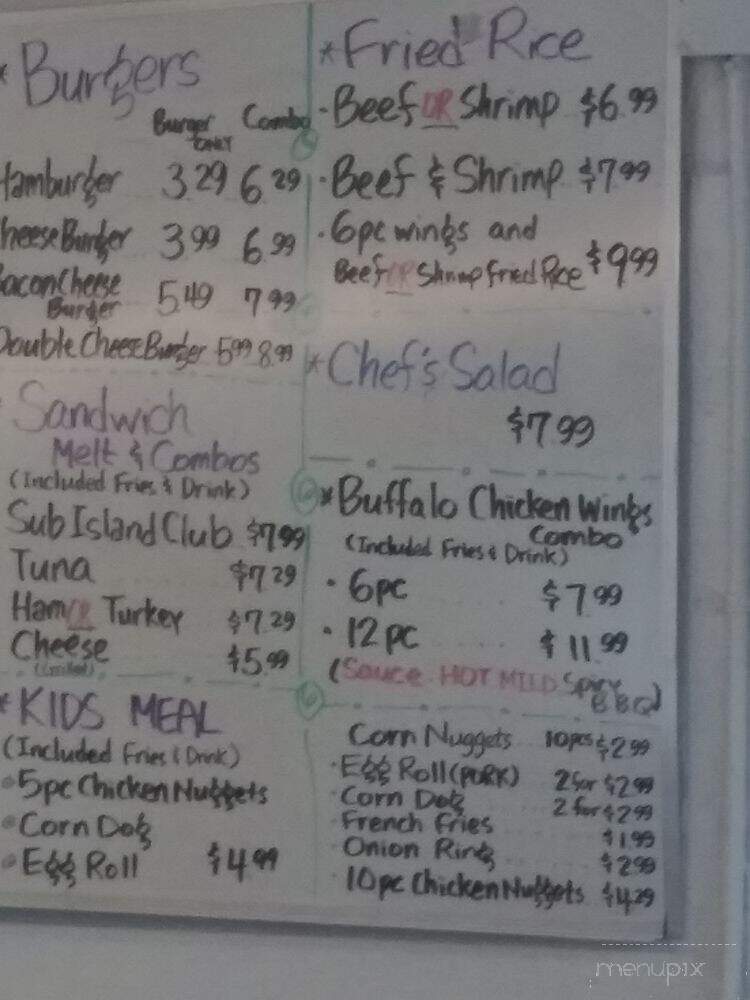 * Burgers
Burger ONLY Combo
Hamburger 3.29 6.29
CheeseBurger 3.99 6.99
BaconCheese Burger 5.49 7.99
Double CheeseBurger 5.99 8.99
Sandwich
Melt & Combos
(Included Fries & Drink)
Sub Island Club $7.99
Tuna $7.29
Ham OR Turkey $7.29
Cheese $5.99
* KIDS MEAL
(Included Fries & Drink)
• 5pc Chicken Nuggets
• Corn Dog
• Egg Roll $4.99
* Fried Rice
• Beef OR Shrimp $6.99
• Beef & Shrimp $7.99
• 6pc wings and
Beef OR Shrimp Fried Rice $9.99
* Chef's Salad
$7.99
* Buffalo Chicken Wings
Combo
(Included Fries & Drink)
• 6pc $7.99
• 12pc $11.99
(Sauce HOT MILD Spicy BBQ)
Corn Nuggets 10pcs $2.99
• Egg Roll (PORK) 2 for $2.99
Corn Dog 2 for $2.99
French Fries $1.99
Onion Ring $2.99
• 10pc Chicken Nuggets $4.29
menupix